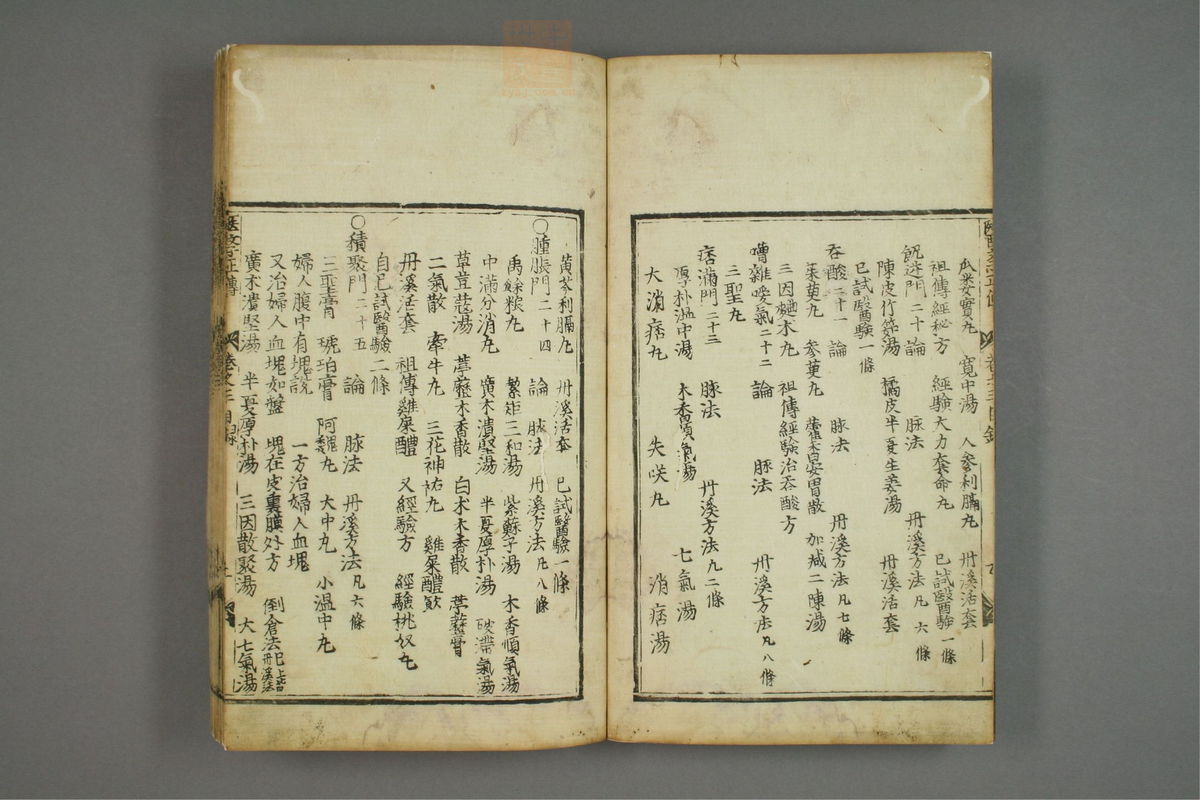 瓜蔞實丸 寬中湯 人參利膈丸 丹溪活套
祖傳經秘方 經驗大力奪命丸 已試醫驗一條
呃逆門二十 論 脉法 丹溪方法凡六條
陳皮竹茹湯 橘皮半夏生姜湯 丹溪活套
已試醫驗一條
吞酸二十一 論 脉法 丹溪方法凡七條
茱萸丸 參萸丸 藿香安胃散 加减二陳湯
三因麯术丸 祖傳經驗治吞酸方
嘈雜噯氣二十二 論 脉法 丹溪方法凡八條
三聖丸
痞滿門二十三 脉法 丹溪方法九二條
厚朴溫中湯 木香順氣湯 七氣湯
大消痞丸 失咲丸 消痞湯
黃芩利膈丸 丹溪活套 已試醫驗一條
○腫脹門二十四 論 脉法 丹溪方法凡八條
禹餘粮丸 紫蘇子湯 木香順氣湯
中滿分消丸 廣术潰堅湯 半夏厚朴湯 破滯氣湯
草荳蔻湯 葶藶木香散 白术木香散 葶藶膏
二氣散 牽牛丸 三花神祐丸 雞屎醴飲
丹溪活套 祖傳雞屎醴 又經驗方 經驗桃奴丸
自己試醫驗二條
○積聚門二十五 論 脉法 丹溪方法凡六條
三聖膏 琥珀膏 阿魏丸 大中丸 小溫中丸
婦人腹中有塊説 一方治婦人血塊
又治婦人血塊如盤 塊在皮裏膜外方 倒倉法
廣术潰堅湯 半夏厚朴湯 三因散聚湯 大七氣湯